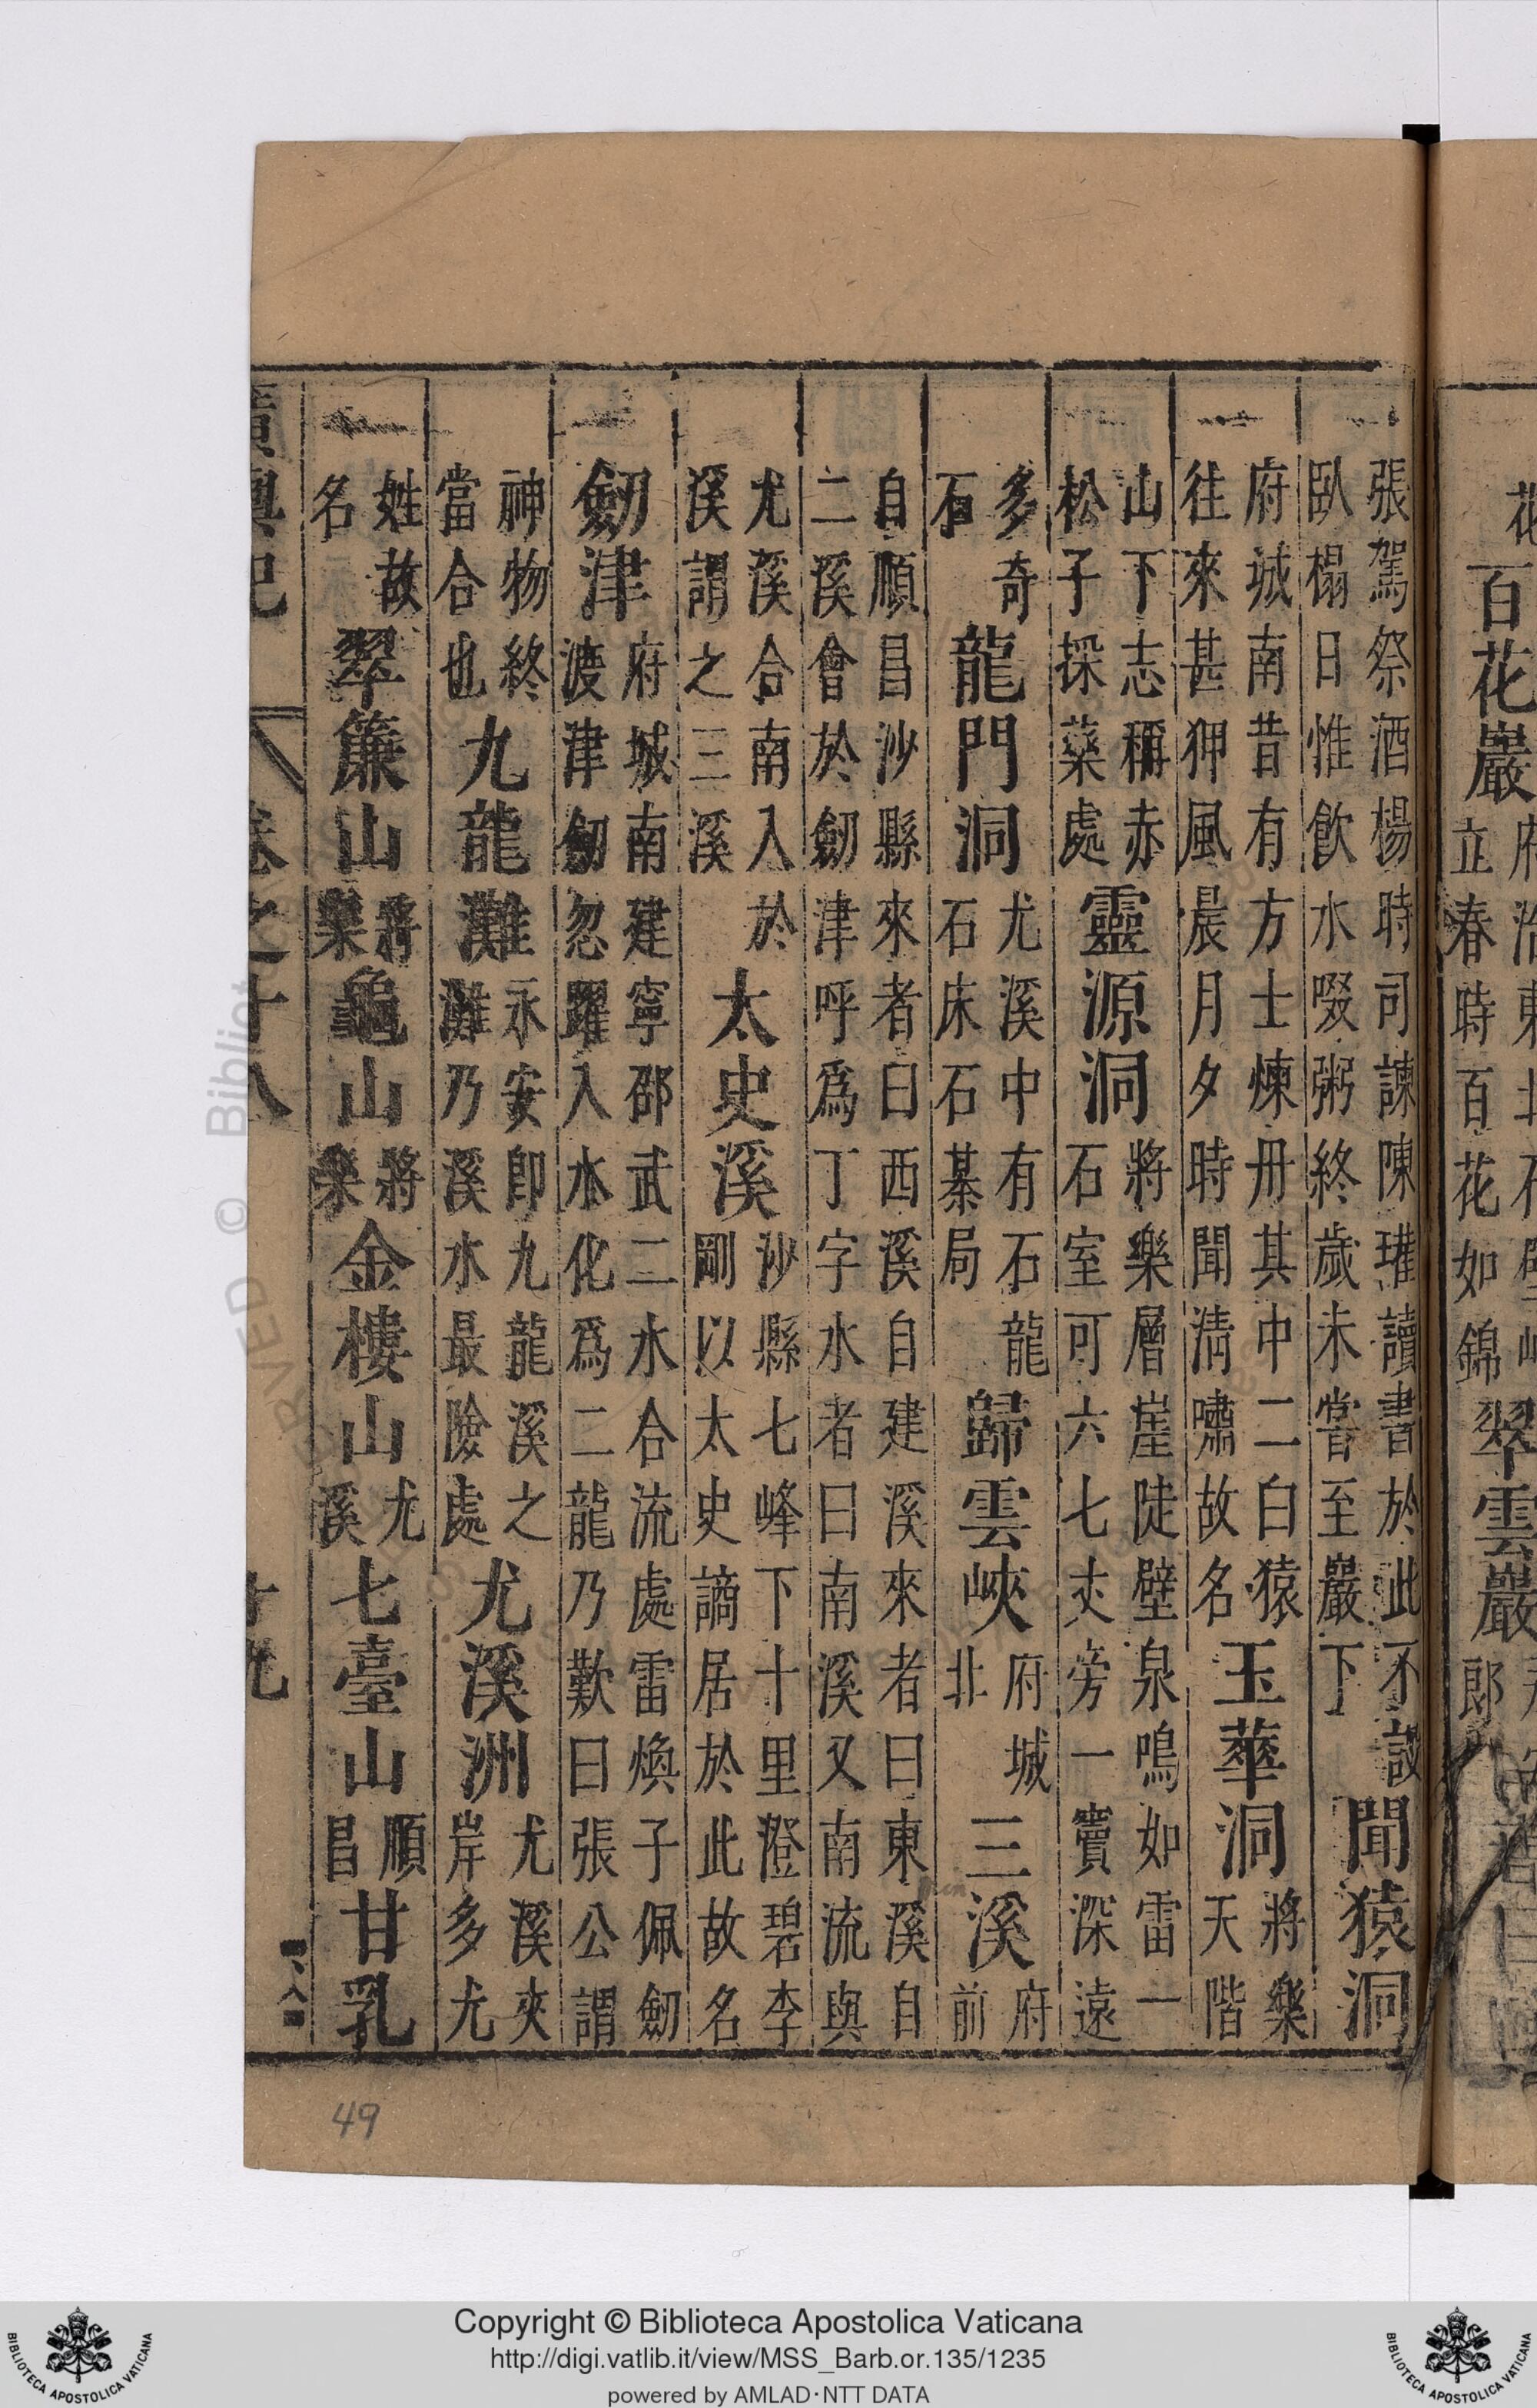 百花巖
立春時百花如錦
翠雲巖
張駕祭酒楊時司諫陳瓘讀書於此不設
臥榻日惟飲水啜粥終歲未嘗至巖下
聞猿洞
府城南昔有方士煉丹其中二白猿
往來甚狎風晨月夕時聞清嘯故名
玉華洞
將樂
天階
山下志稱赤
松子採藥處
靈源洞
將樂層崖陡壁泉鳴如雷一
石室可六七丈旁一竇深遠
多奇
石
龍門洞
尤溪中有石龍
石床石棊局
歸雲峽
府城
北
三溪
府
前
自順昌沙縣來者曰西溪自建溪來者曰東溪自
二溪會於劒津呼爲丁字水者曰南溪又南流與
尤溪合南入於
溪謂之三溪
太史溪
沙縣七峰下十里澄碧李
剛以太史謫居於此故名
劒津
府城南建寧邵武二水合流處雷煥子佩劒
渡津劒忽躍入水化爲二龍乃歎曰張公謂
神物終
當合也
九龍灘
永安即九龍溪之
灘乃溪水最險處
尤溪洲
尤溪夾
岸多尤
姓故
名
翠簾山
將樂
龜山
將樂
金樓山
尤溪
七臺山
順昌
甘乳
廣輿記
卷之十八
廿九
49
Copyright © Biblioteca Apostolica Vaticana
http://digi.vatlib.it/view/MSS_Barb.or.135/1235
powered by AMLAD·NTT DATA
BIBLIOTECA APOSTOLICA VATICANA
BIBLIOTECA APOSTOLICA VATICANA